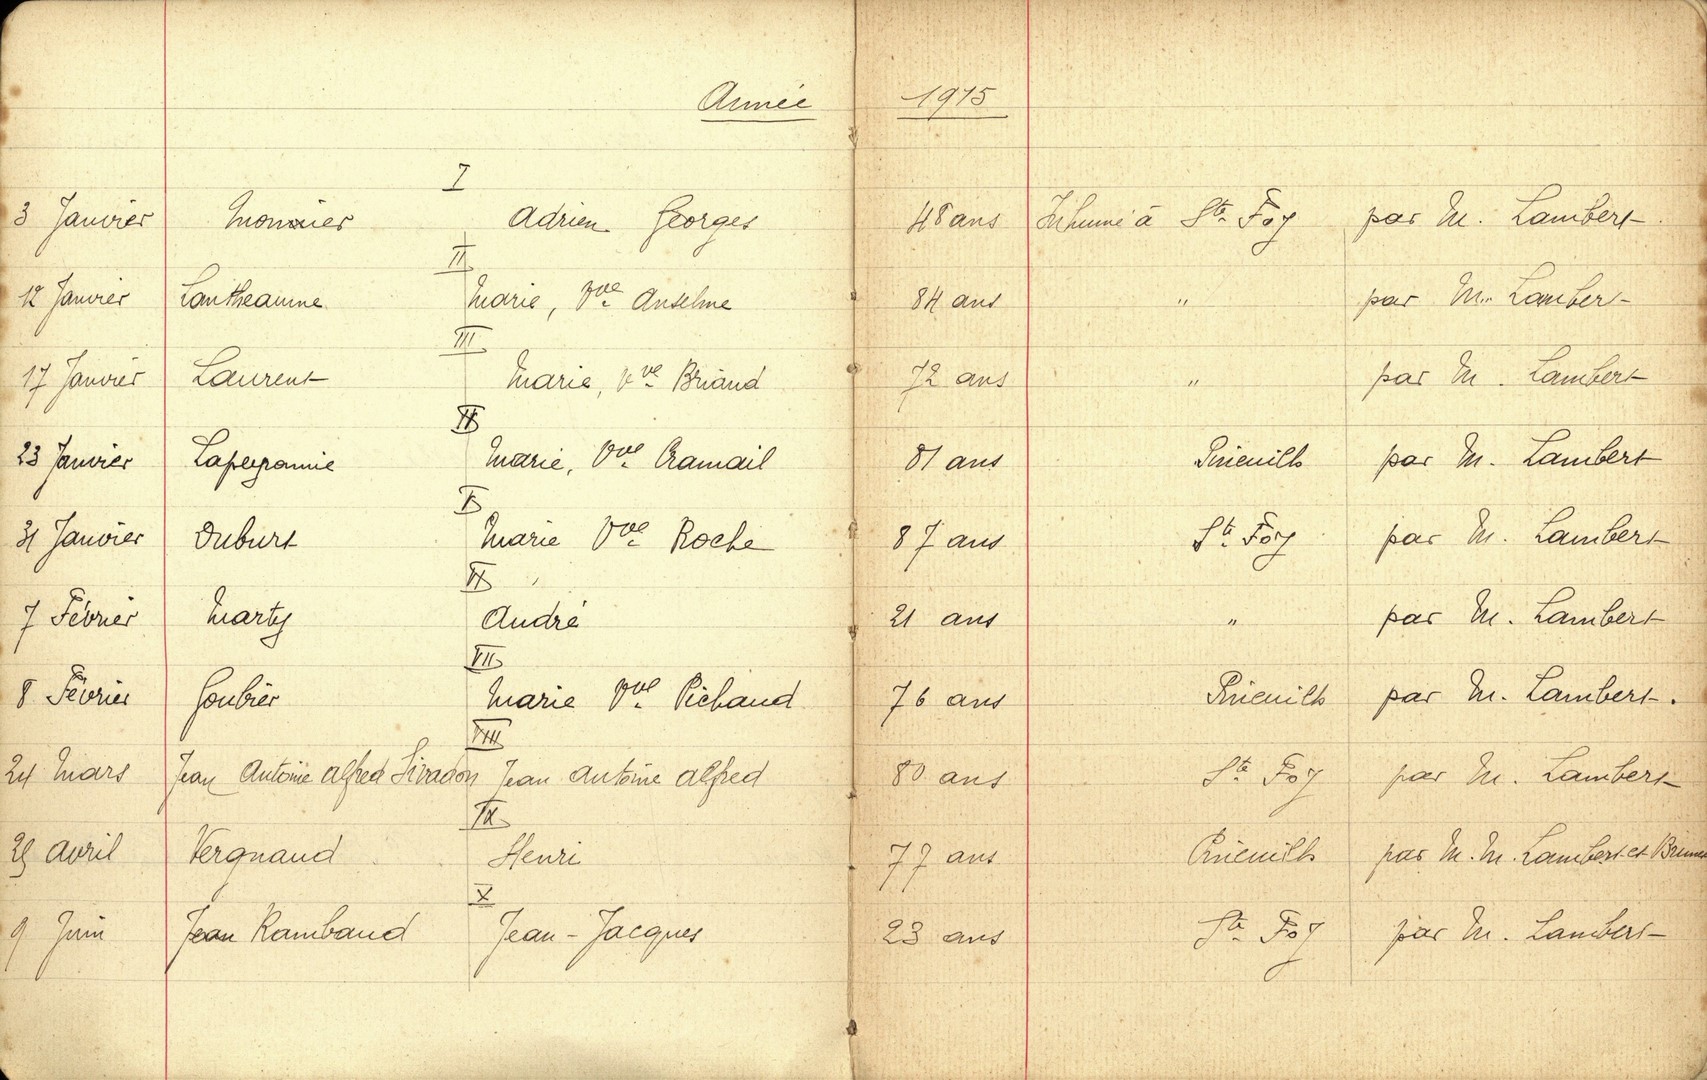 Année 1915
I
3 Janvier Monnier Adrien Georges 48 ans Inhumé à Ste Foy par M. Lambert.
II
12 Janvier Lantheaume Marie, Vve Anselme 84 ans " par M. Lambert
III
17 Janvier Laurent Marie, Vve Briand 72 ans " par M. Lambert
IV
23 Janvier Lapeyronnie Marie, Vve Cramail 81 ans Pineuilh par M. Lambert
V
31 Janvier Duburt Marie Vve Roche 87 ans Ste Foy par M. Lambert
VI
7 Février Marty André 21 ans " par M. Lambert
VII
8 Février Goubier Marie Vve Pichaud 76 ans Pineuilh par M. Lambert.
VIII
24 Mars Jean Antoine Alfred Sivadon Jean Antoine Alfred 80 ans Ste Foy par M. Lambert
IX
Avril Vergnaud Henri 77 ans Pineuilh par M. M. Lambert et
X
9 Juin Jean Rambaud Jean-Jacques 23 ans Ste Foy par M. Lambert